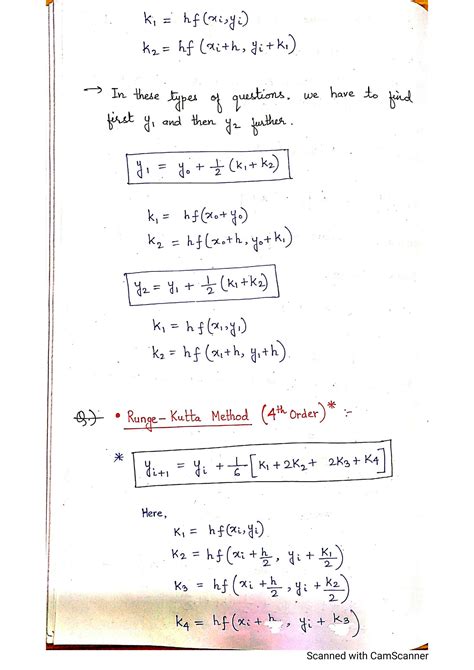 k₁ = hf(xᵢ, yᵢ)
k₂ = hf(xᵢ+h, yᵢ+k₁)
→ In these types of questions. we have to find
first y₁ and then y₂ further.
y₁ = y₀ + 1/2 (k₁+k₂)
k₁ = hf(x₀+y₀)
k₂ = hf(x₀+h, y₀+k₁)
y₂ = y₁ + 1/2 (k₁+k₂)
k₁ = hf(x₁, y₁)
k₂ = hf(x₁+h, y₁+h)
Q.) • Runge-Kutta Method (4th Order)* :-
* yᵢ₊₁ = yᵢ + 1/6 [K₁ + 2K₂ + 2K₃ + K₄]
Here,
K₁ = hf(xᵢ, yᵢ)
K₂ = hf(xᵢ + h/2, yᵢ + K₁/2)
K₃ = hf(xᵢ + h/2, yᵢ + k₂/2)
K₄ = hf(xᵢ + h, yᵢ + k₃)
Scanned with CamScanner